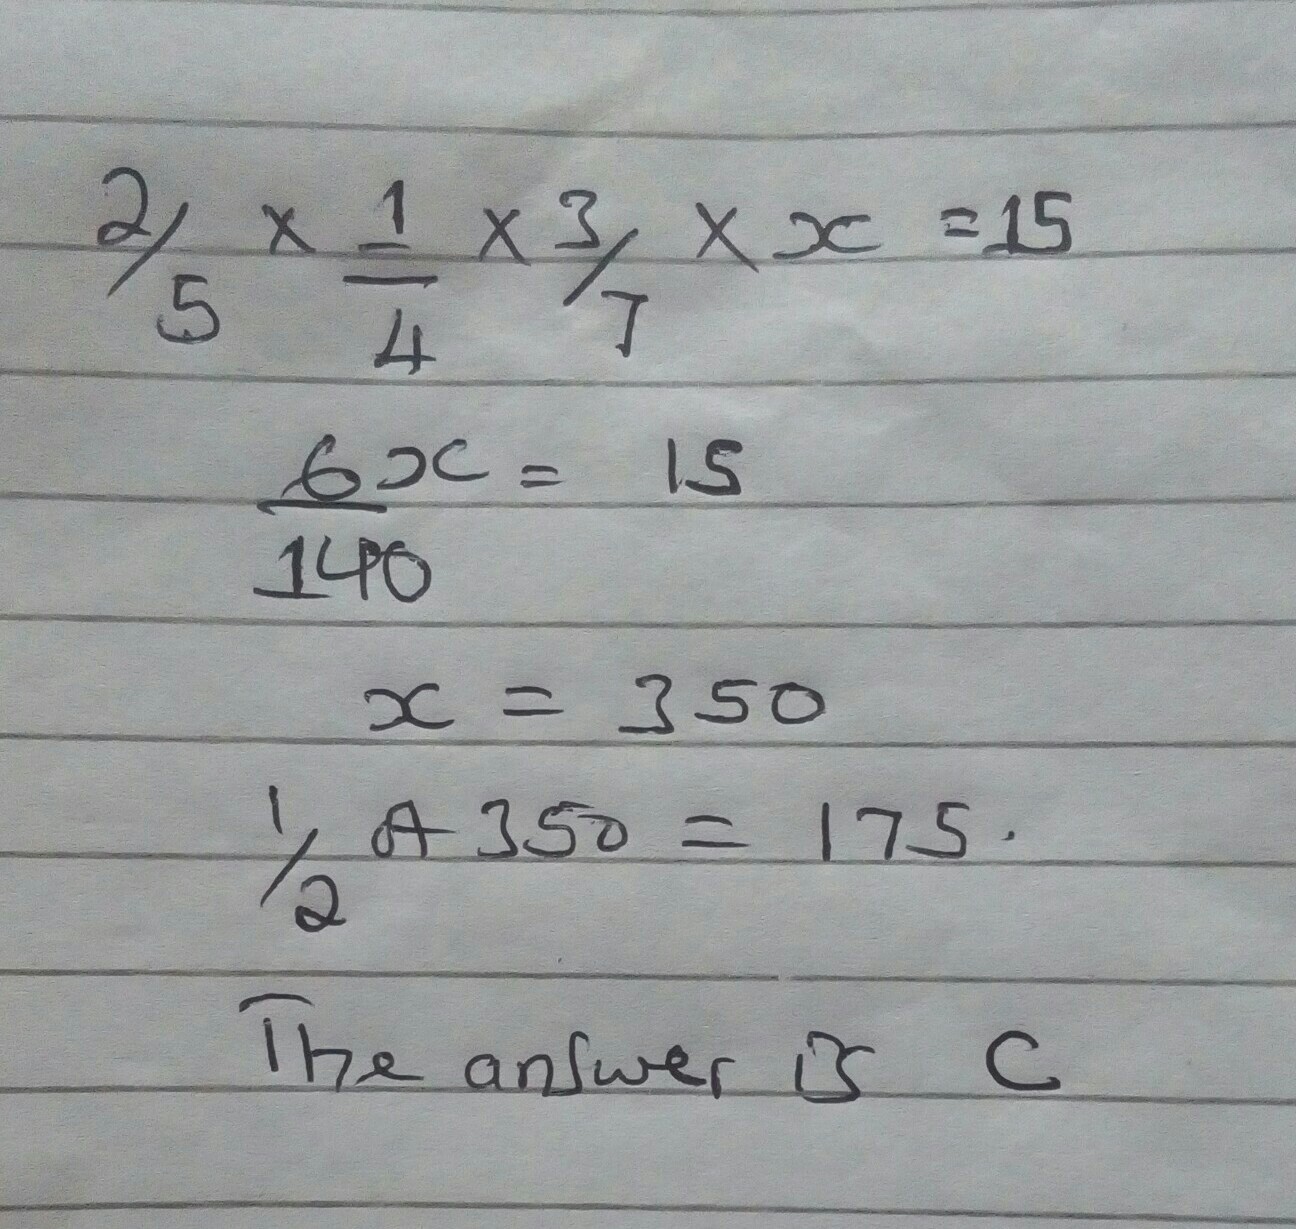 2/5 × 1/4 × 3/7 × x = 15
6x/140 = 15
x = 350
1/2 A 350 = 175.
The answer is C